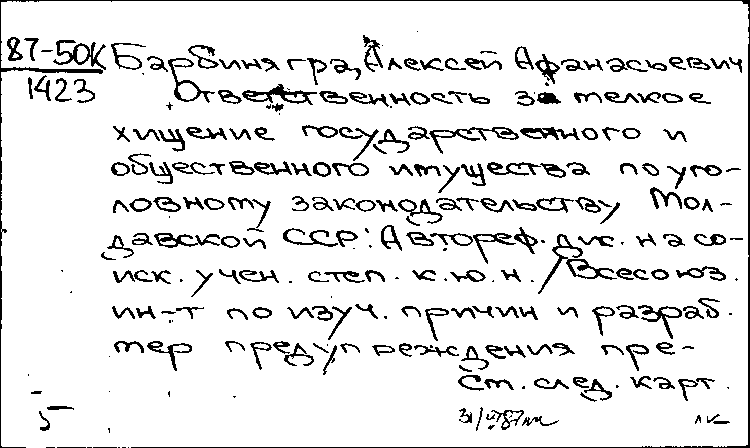 87-50К Барбинягра, Алексей Афанасьевич
1423 Ответственность за мелкое
хищение государственного и
общественного имущества по уго-
ловному законодательству Мол-
давской ССР: Автореф. дис. на со-
иск. учен. степ. к.ю.н. / Всесоюз.
ин-т по изуч. причин и разраб.
мер предупреждения пре-
См. след. карт.
5